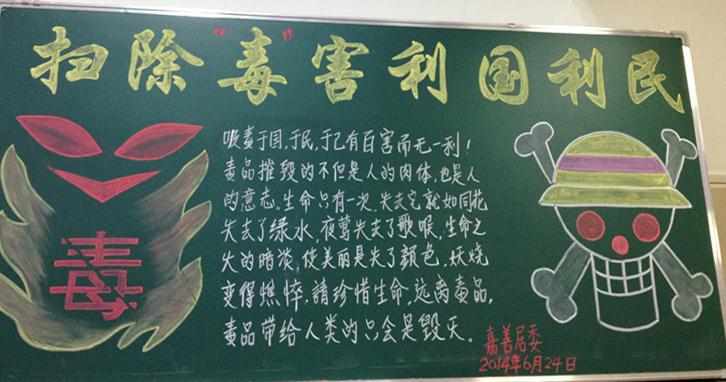 扫除"毒"害利国利民
吸毒于国,于民,于己有百害而无一利!
毒品摧毁的不但是人的肉体,也是人
的意志,生命只有一次,失去它就如同花
失去了绿水,夜莺失去了歌喉,生命之
火的暗淡,使美丽是失了颜色,妖娆
变得憔悴,請珍惜生命,远离毒品,
毒品带给人类的只会是毁灭。
毒
嘉善居委
2014年6月24日